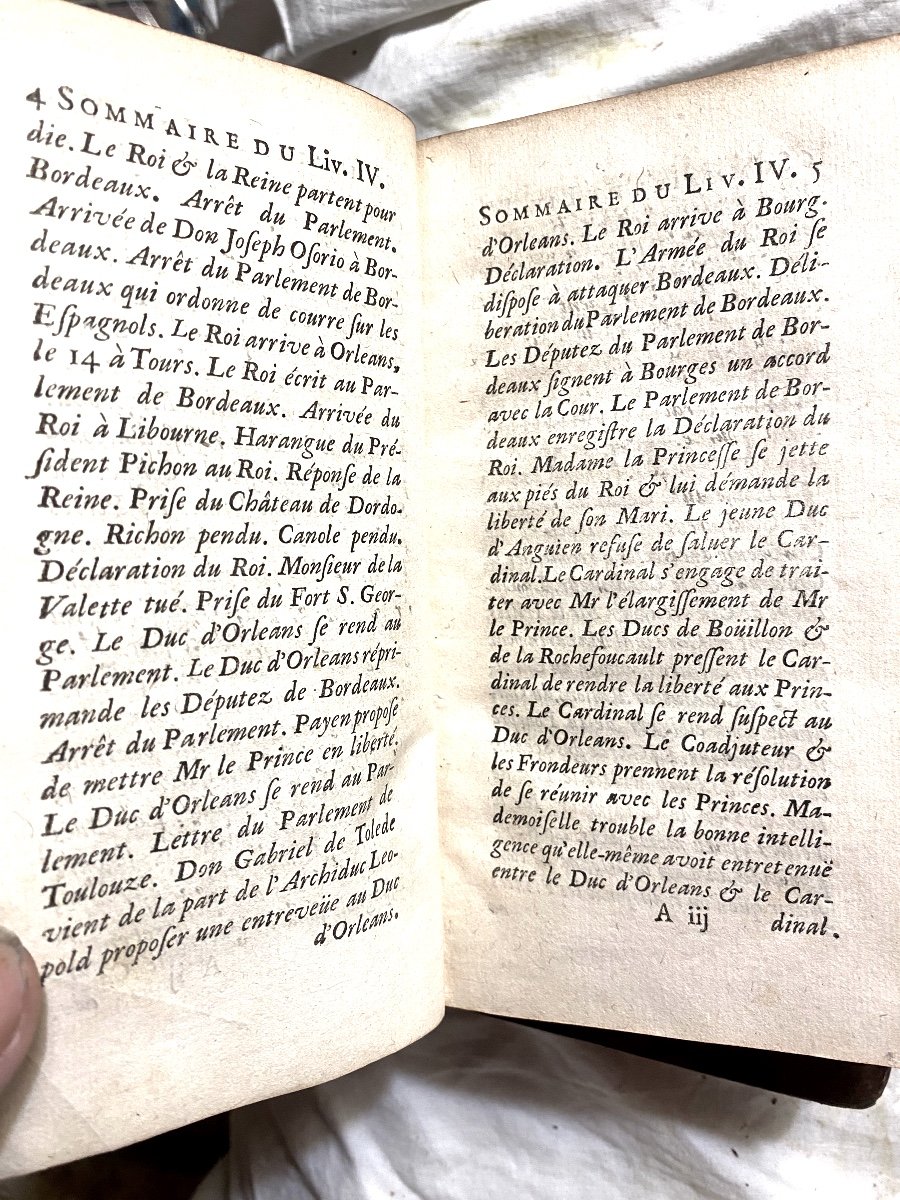 4 SOMMAIRE DU LIV. IV.
die. Le Roi & la Reine partent pour
Bordeaux. Arrêt du Parlement.
Arrivée de Don Joſeph Oſorio à Bor-
deaux. Arrêt du Parlement de Bor-
deaux qui ordonne de courre ſur les
Eſpagnols. Le Roi arrive à Orleans,
le 14 à Tours. Le Roi écrit au Par-
lement de Bordeaux. Arrivée du
Roi à Libourne. Harangue du Pré-
ſident Pichon au Roi. Réponſe de la
Reine. Priſe du Château de Dordo-
gne. Richon pendu. Canole pendu.
Déclaration du Roi. Monſieur de la
Valette tué. Priſe du Fort S. Geor-
ge. Le Duc d'Orleans ſe rend au
Parlement. Le Duc d'Orleans répri-
mande les Députez de Bordeaux.
Arrêt du Parlement. Payen propoſe
de mettre Mr le Prince en liberté.
Le Duc d'Orleans ſe rend au Par-
lement. Lettre du Parlement de
Toulouze. Don Gabriel de Tolede
vient de la part de l'Archiduc Leo-
pold propoſer une entreveüe au Duc
d'Orleans.
SOMMAIRE DU LIV. IV. 5
d'Orleans. Le Roi arrive à Bourg.
Déclaration. L'Armée du Roi ſe
diſpoſe à attaquer Bordeaux. Déli-
beration du Parlement de Bordeaux.
Les Députez du Parlement de Bor-
deaux ſignent à Bourges un accord
avec la Cour. Le Parlement de Bor-
deaux enregiſtre la Déclaration du
Roi. Madame la Princeſſe ſe jette
aux piés du Roi & lui demande la
liberté de ſon Mari. Le jeune Duc
d'Anguien refuſe de ſaluer le Car-
dinal. Le Cardinal s'engage de trai-
ter avec Mr l'élargiſſement de Mr
le Prince. Les Ducs de Boüillon &
de la Rochefoucault preſſent le Car-
dinal de rendre la liberté aux Prin-
ces. Le Cardinal ſe rend ſuſpect au
Duc d'Orleans. Le Coadjuteur &
les Frondeurs prennent la réſolution
de ſe réunir avec les Princes. Ma-
demoiſelle trouble la bonne intelli-
gence qu'elle-même avoit entretenuë
entre le Duc d'Orleans & le Car-
A iij dinal.